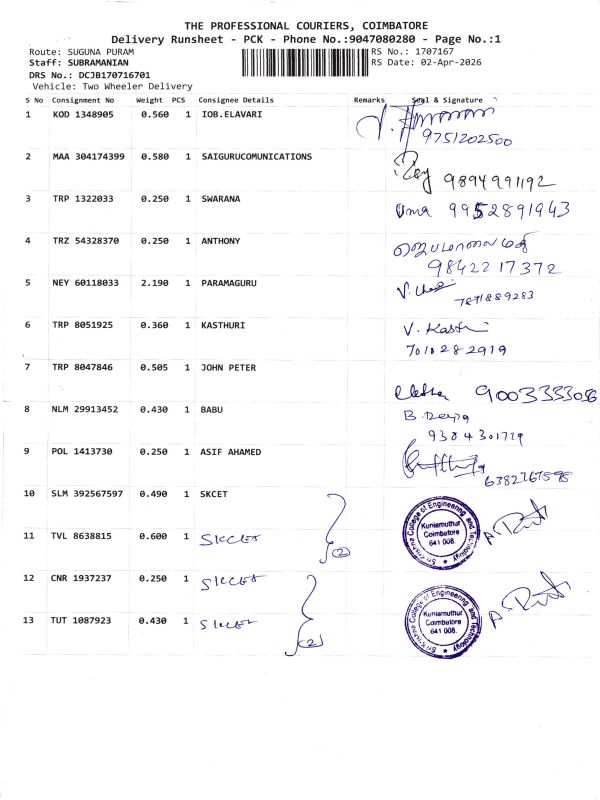 THE PROFESSIONAL COURIERS, COIMBATORE
Delivery Runsheet - PCK - Phone No.:9047080280 - Page No.:1
Route: SUGUNA PURAM RS No.: 1707167
Staff: SUBRAMANIAN RS Date: 02-Apr-2026
DRS No.: DCJB170716701
Vehicle: Two Wheeler Delivery
S No Consignment No Weight PCS Consignee Details Remarks Seal & Signature
1 KOD 1348905 0.560 1 IOB.ELAVARI
9751202500
2 MAA 304174399 0.580 1 SAIGURUCOMUNICATIONS
9894991192
3 TRP 1322033 0.250 1 SWARANA Uma 9952891943
4 TRZ 54328370 0.250 1 ANTHONY
9842217372
5 NEY 60118033 2.190 1 PARAMAGURU
7871889283
6 TRP 8051925 0.360 1 KASTHURI V. Kasthuri
7010282919
7 TRP 8047846 0.505 1 JOHN PETER
8 NLM 29913452 0.430 1 BABU B. Deepa
9384301729
9 POL 1413730 0.250 1 ASIF AHAMED
6382767598
10 SLM 392567597 0.490 1 SKCET
Sri Krishna College of Engineering and Technology
Kuniamuthur
Coimbatore
641 008.
11 TVL 8638815 0.600 1 SKCET (2)
12 CNR 1937237 0.250 1 SKCET
Sri Krishna College of Engineering and Technology
Kuniamuthur
Coimbatore
641 008.
13 TUT 1087923 0.430 1 SKCET (2)